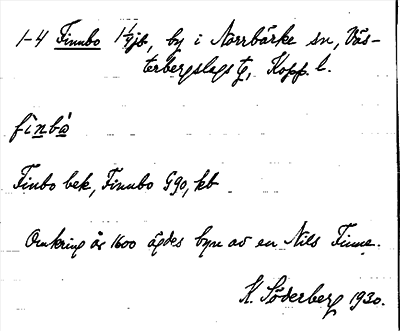 1-4 Finnbo 1 1/4 jb, by i Norrbärke sn, Väs-
terbergslags tg, Kopp. l.
finbò
Finbo bek, Finnbo G90, kb
Omkring år 1600 ägdes byn av en Nils Finne.
K. Söderberg 1930.